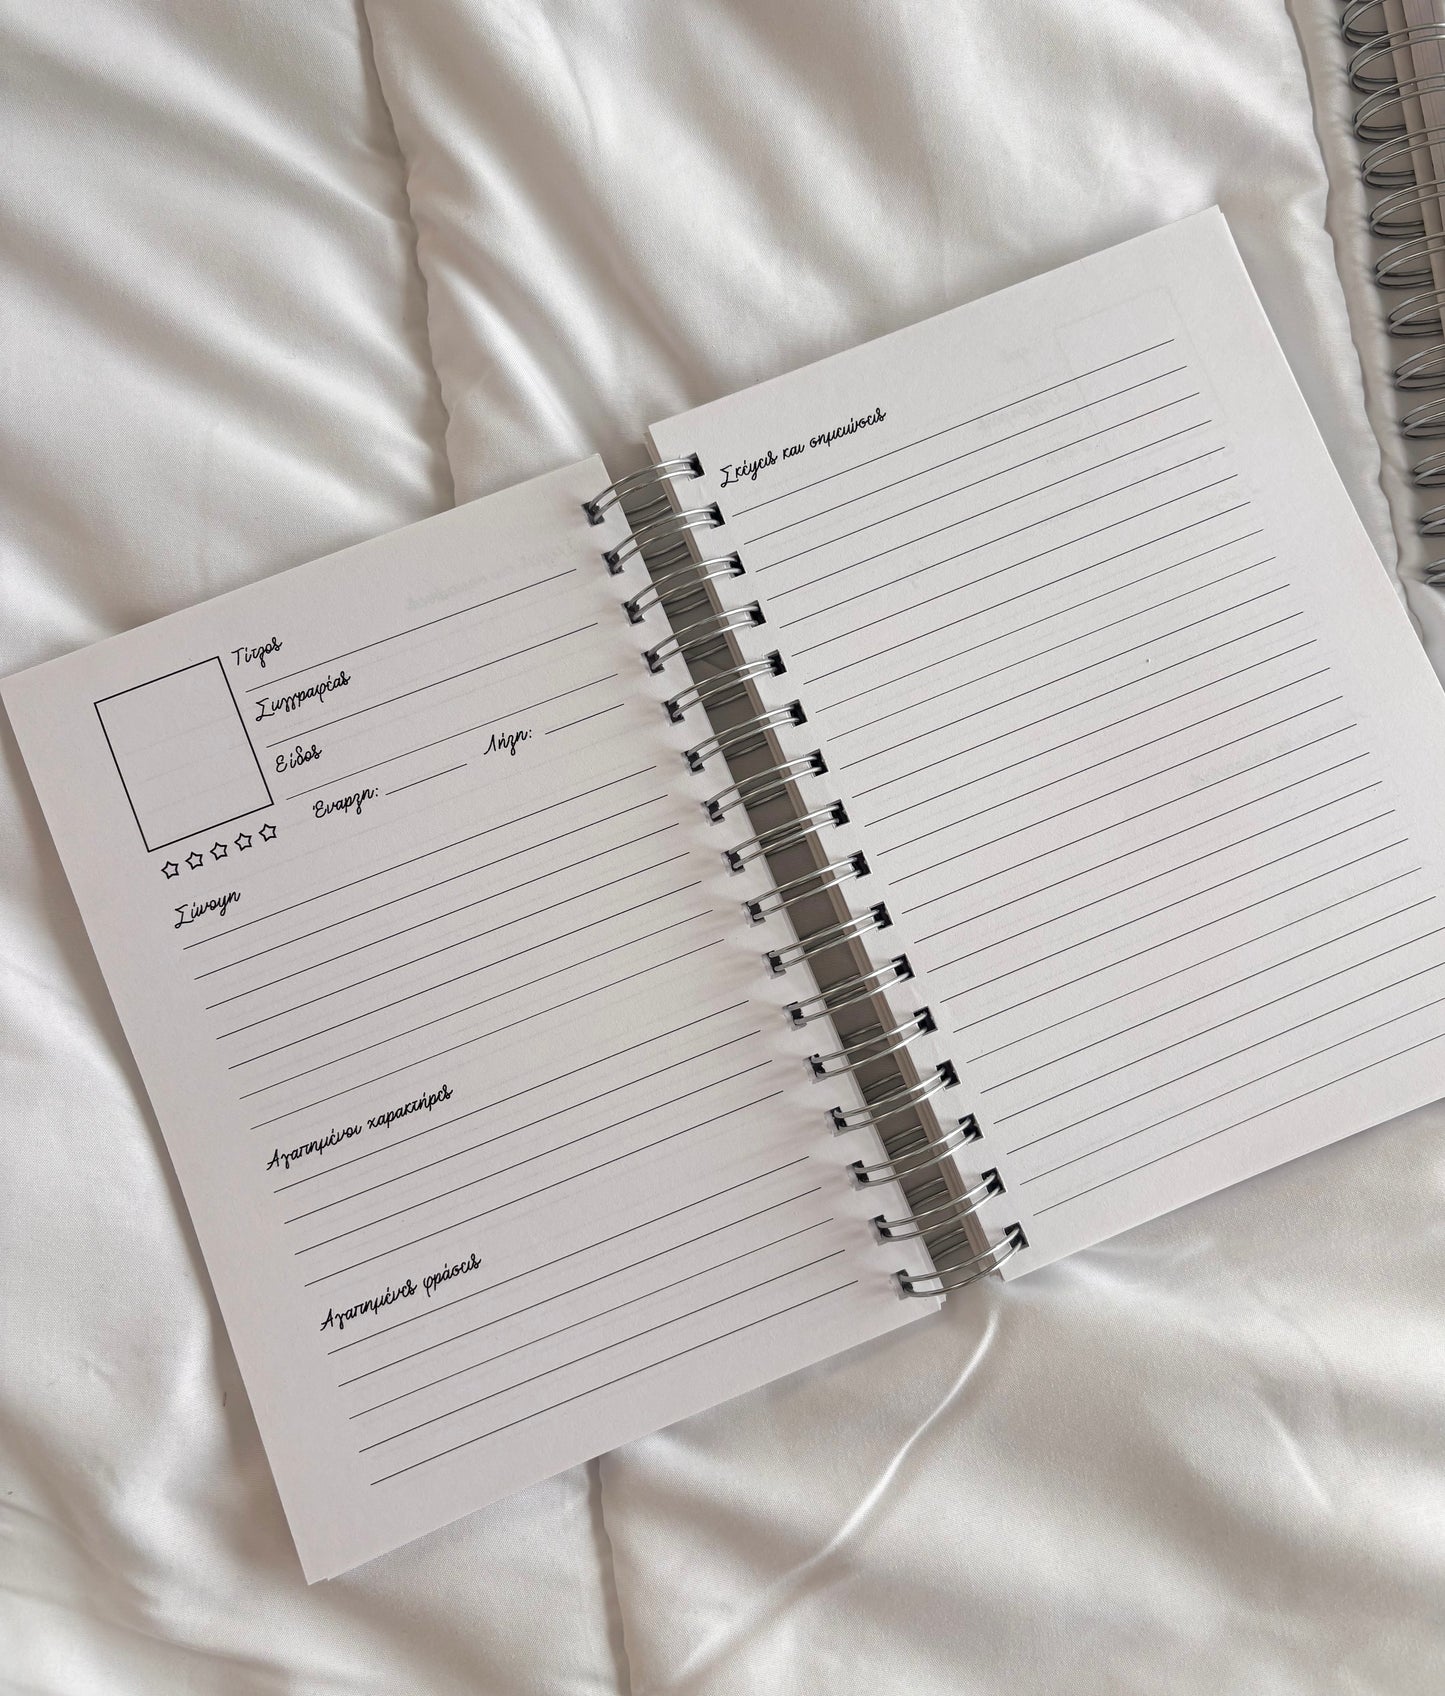 Τίτλος
Συγγραφέας
Είδος
Έναρξη: Λήξη:
Σύνοψη
Αγαπημένοι χαρακτήρες
Αγαπημένες φράσεις
Σκέψεις και σημειώσεις